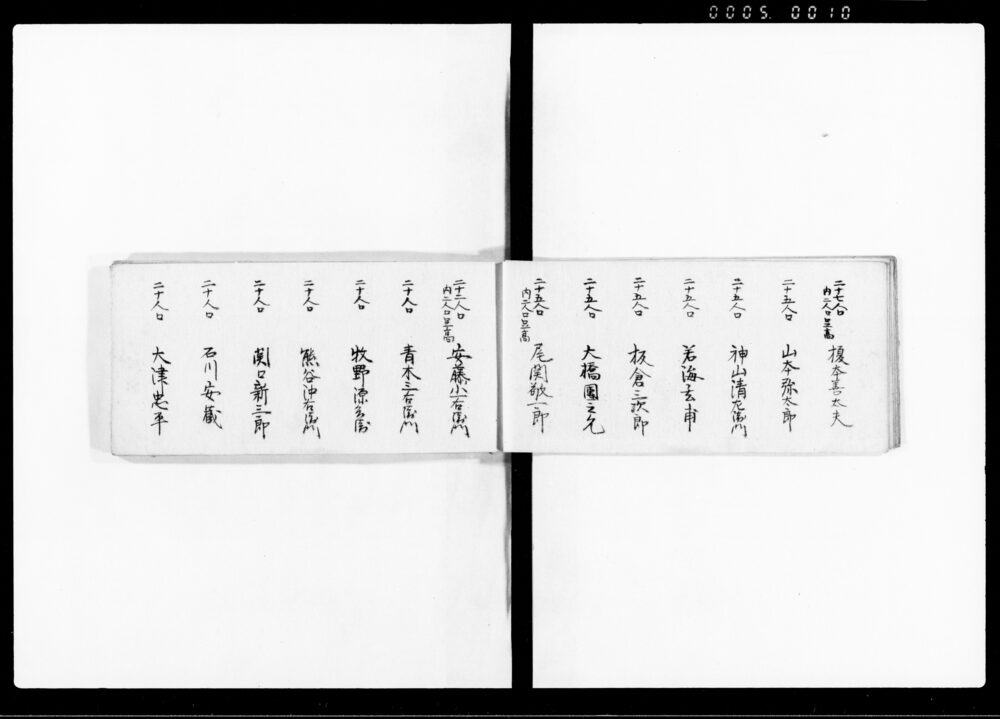 0005. 0010
二十七人口
内二人口足高
榎本善太夫
二十人口
山本弥太郎
二十五人口
神山清左衛門
二十五人口
若海玄甫
二十五人口
板倉三次郎
二十五人口
大橋園之允
二十五人口
内人口足高
尾関敬一郎
二十二人口
内二人口足高
安藤小右衛門
二十人口
青木三右衛門
二十人口
牧野源兵衛
二十人口
熊谷沖右衛門
二十人口
関口新三郎
二十人口
石川安蔵
二十人口
大津忠平